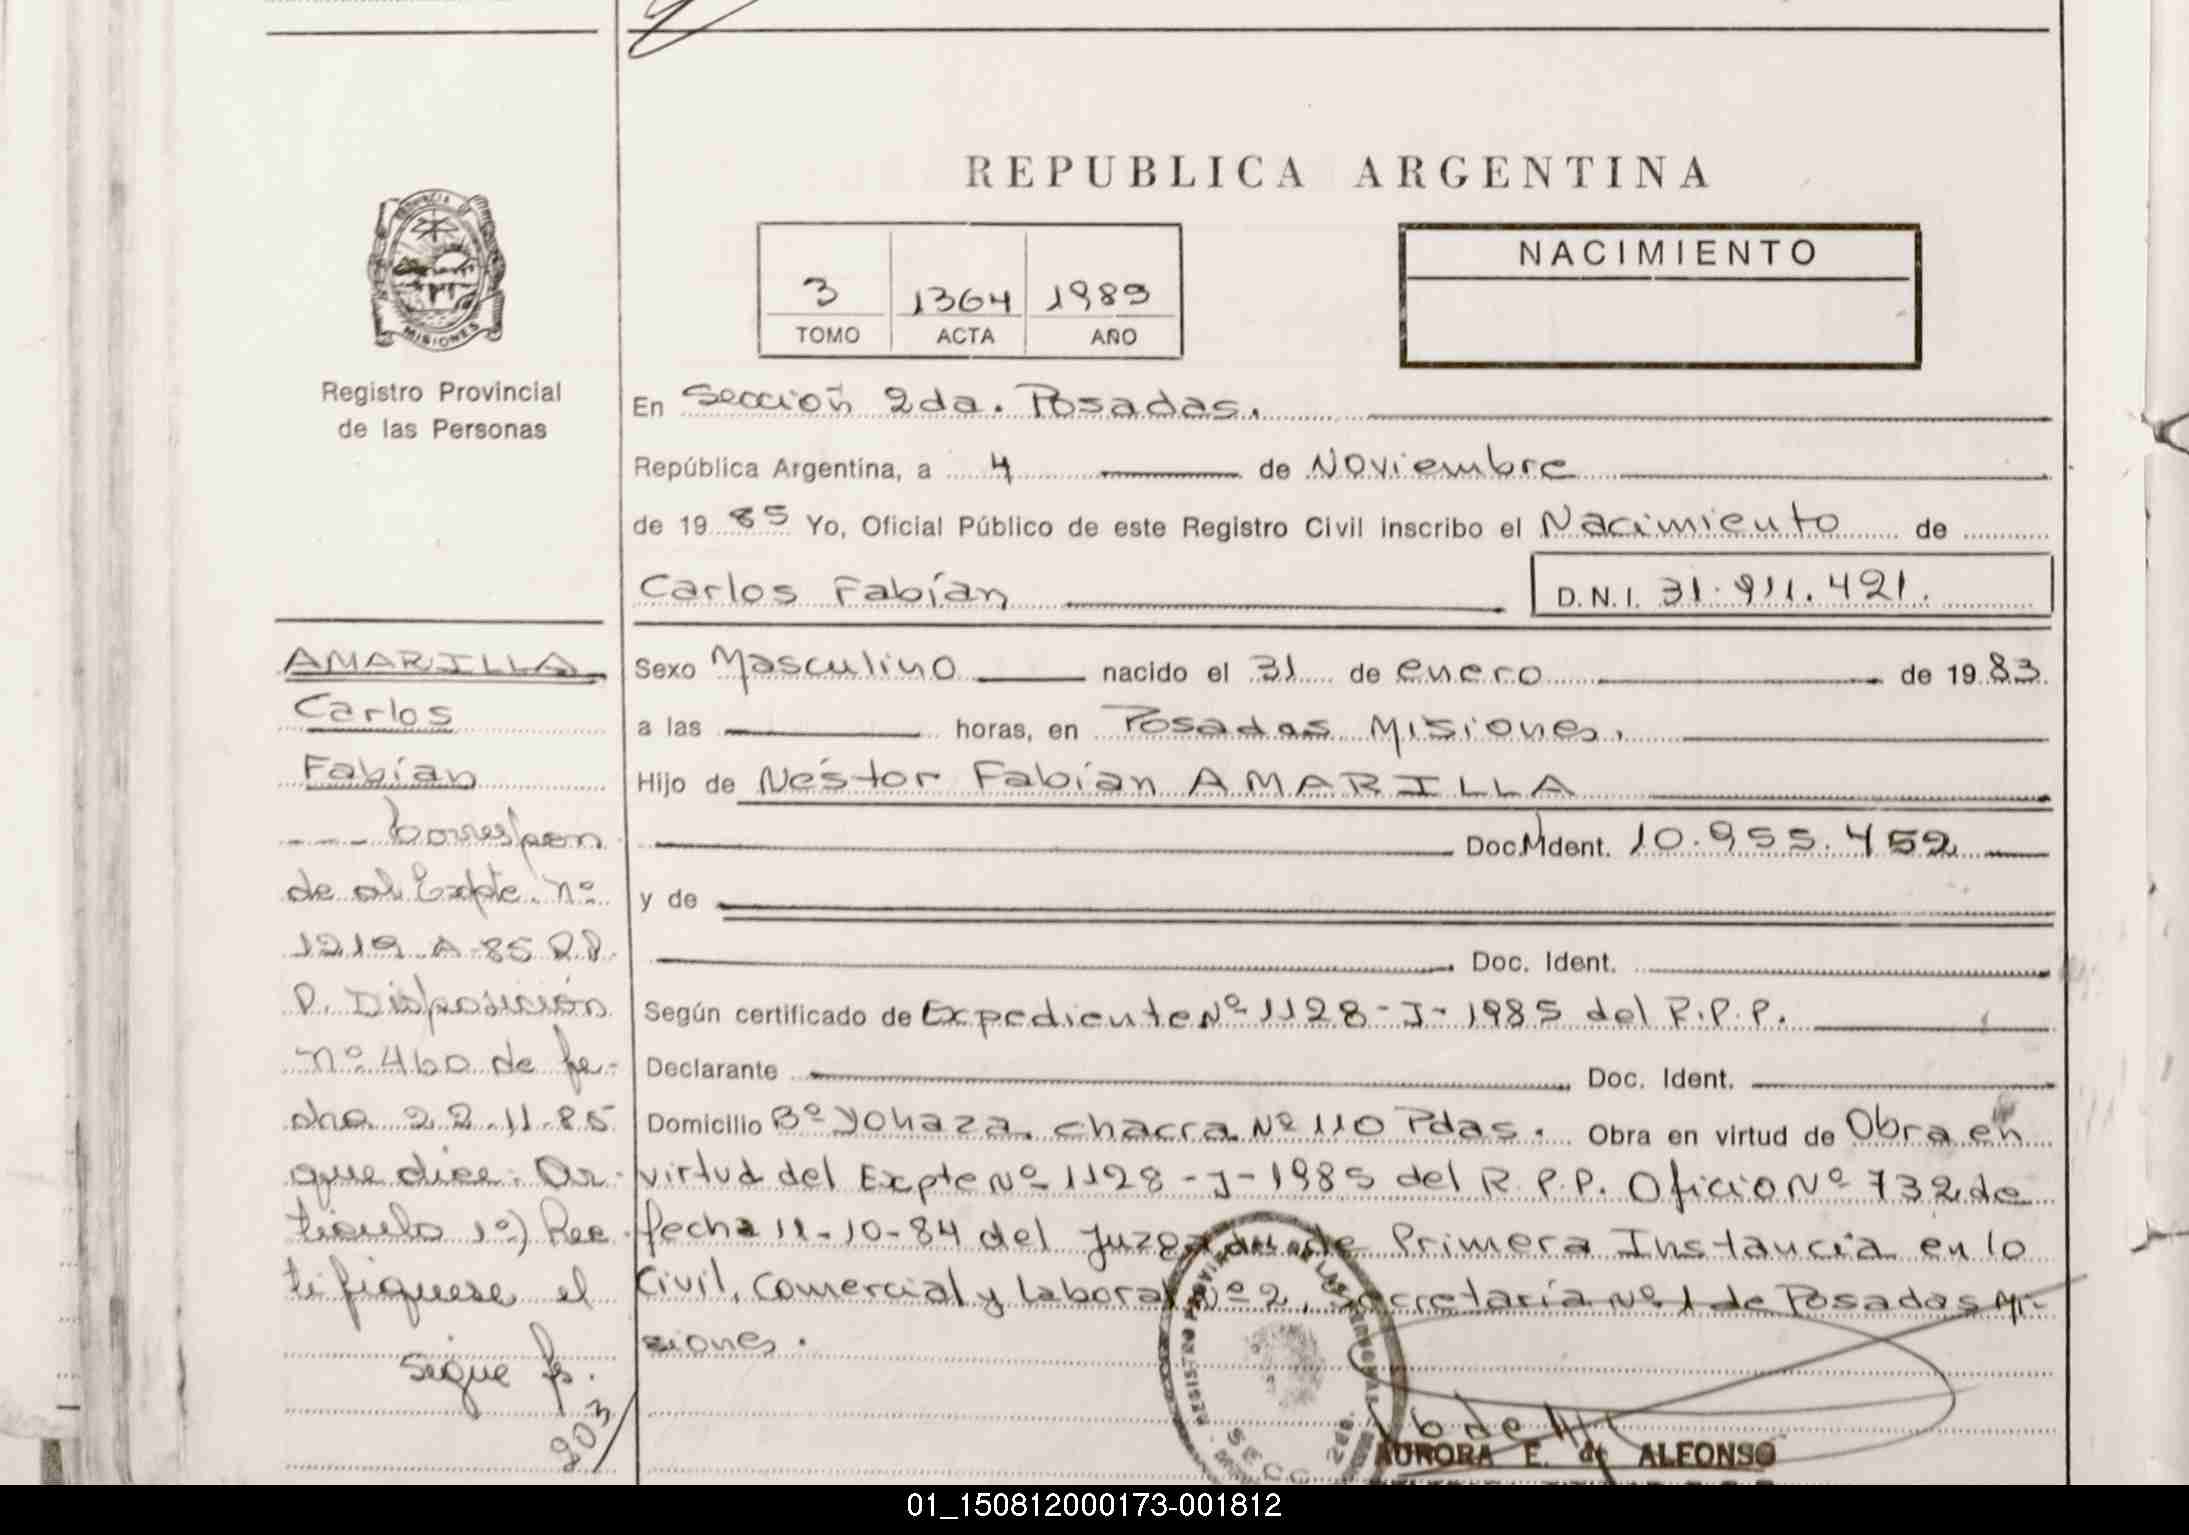 REPUBLICA ARGENTINA
MISIONES
Registro Provincial
de las Personas
3 1364 1989
TOMO ACTA AÑO
NACIMIENTO
En Sección 2da. Posadas.
República Argentina, a 4 de Noviembre
de 19 85 Yo, Oficial Público de este Registro Civil inscribo el Nacimiento de
Carlos Fabían D.N.I. 31.911.421.
AMARILLA
Carlos
Fabían
--- Correspon
de al Expte. Nº
1219-A-85 R.P.
P. Disposición
nº 460 de fe-
cha 22.11.85
que dice: Ar-
tículo 1º) Rec
tifíquese el
sigue fs.
203/
Sexo Masculino nacido el 31 de enero de 1983
a las horas, en Posadas Misiones.
Hijo de Néstor Fabían AMARILLA
Doc. Ident. 10.955.452
y de
Doc. Ident.
Según certificado de Expediente Nº 1128-J-1985 del R.P.P.
Declarante Doc. Ident.
Domicilio Bº Yohaza. chacra Nº 110 Pdas. Obra en virtud de Obra en
virtud del Expte Nº 1128-J-1985 del R.P.P. Oficio Nº 732 de
fecha 11-10-84 del Juzgado de Primera Instancia en lo
Civil, Comercial y Laboral Nº 2, Secretaría Nº 1 de Posadas Mi-
siones.
REGISTRO PROVINCIAL DE LAS PERSONAS
SECC 2da.
AURORA E. de ALFONSO
01_150812000173-001812